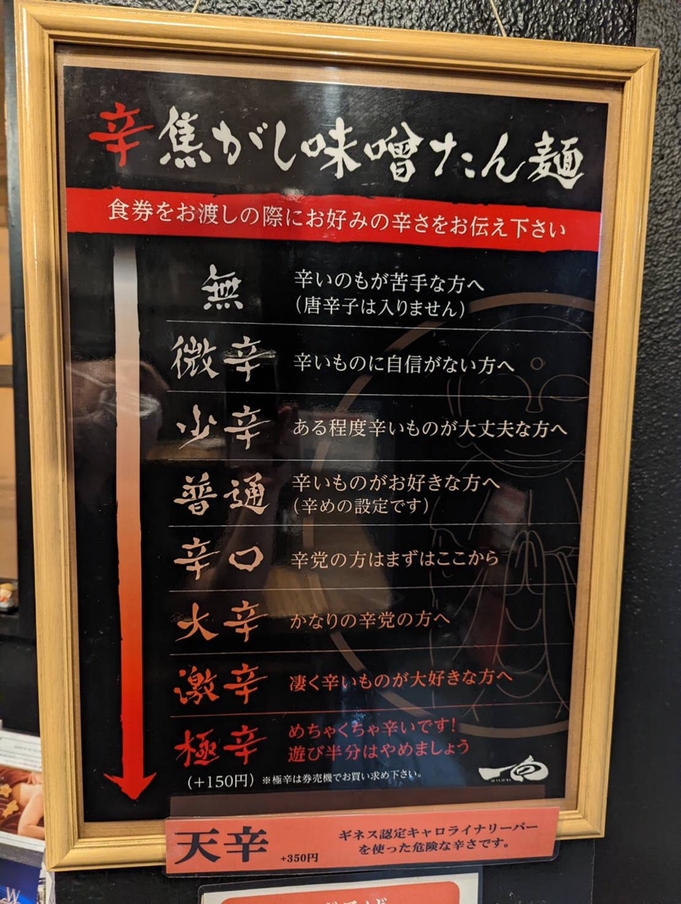 辛焦がし味噌たん麺
食券をお渡しの際にお好みの辛さをお伝え下さい
無
辛いのもが苦手な方へ
（唐辛子は入りません）
微辛
辛いものに自信がない方へ
少辛
ある程度辛いものが大丈夫な方へ
普通
辛いものがお好きな方へ
（辛めの設定です）
辛口
辛党の方はまずはここから
大辛
かなりの辛党の方へ
激辛
凄く辛いものが大好きな方へ
極辛
めちゃくちゃ辛いです！
遊び半分はやめましょう
（+150円）※極辛は券売機でお買い求め下さい。
天辛
+350円
ギネス認定キャロライナリーパー
を使った危険な辛さです。
W